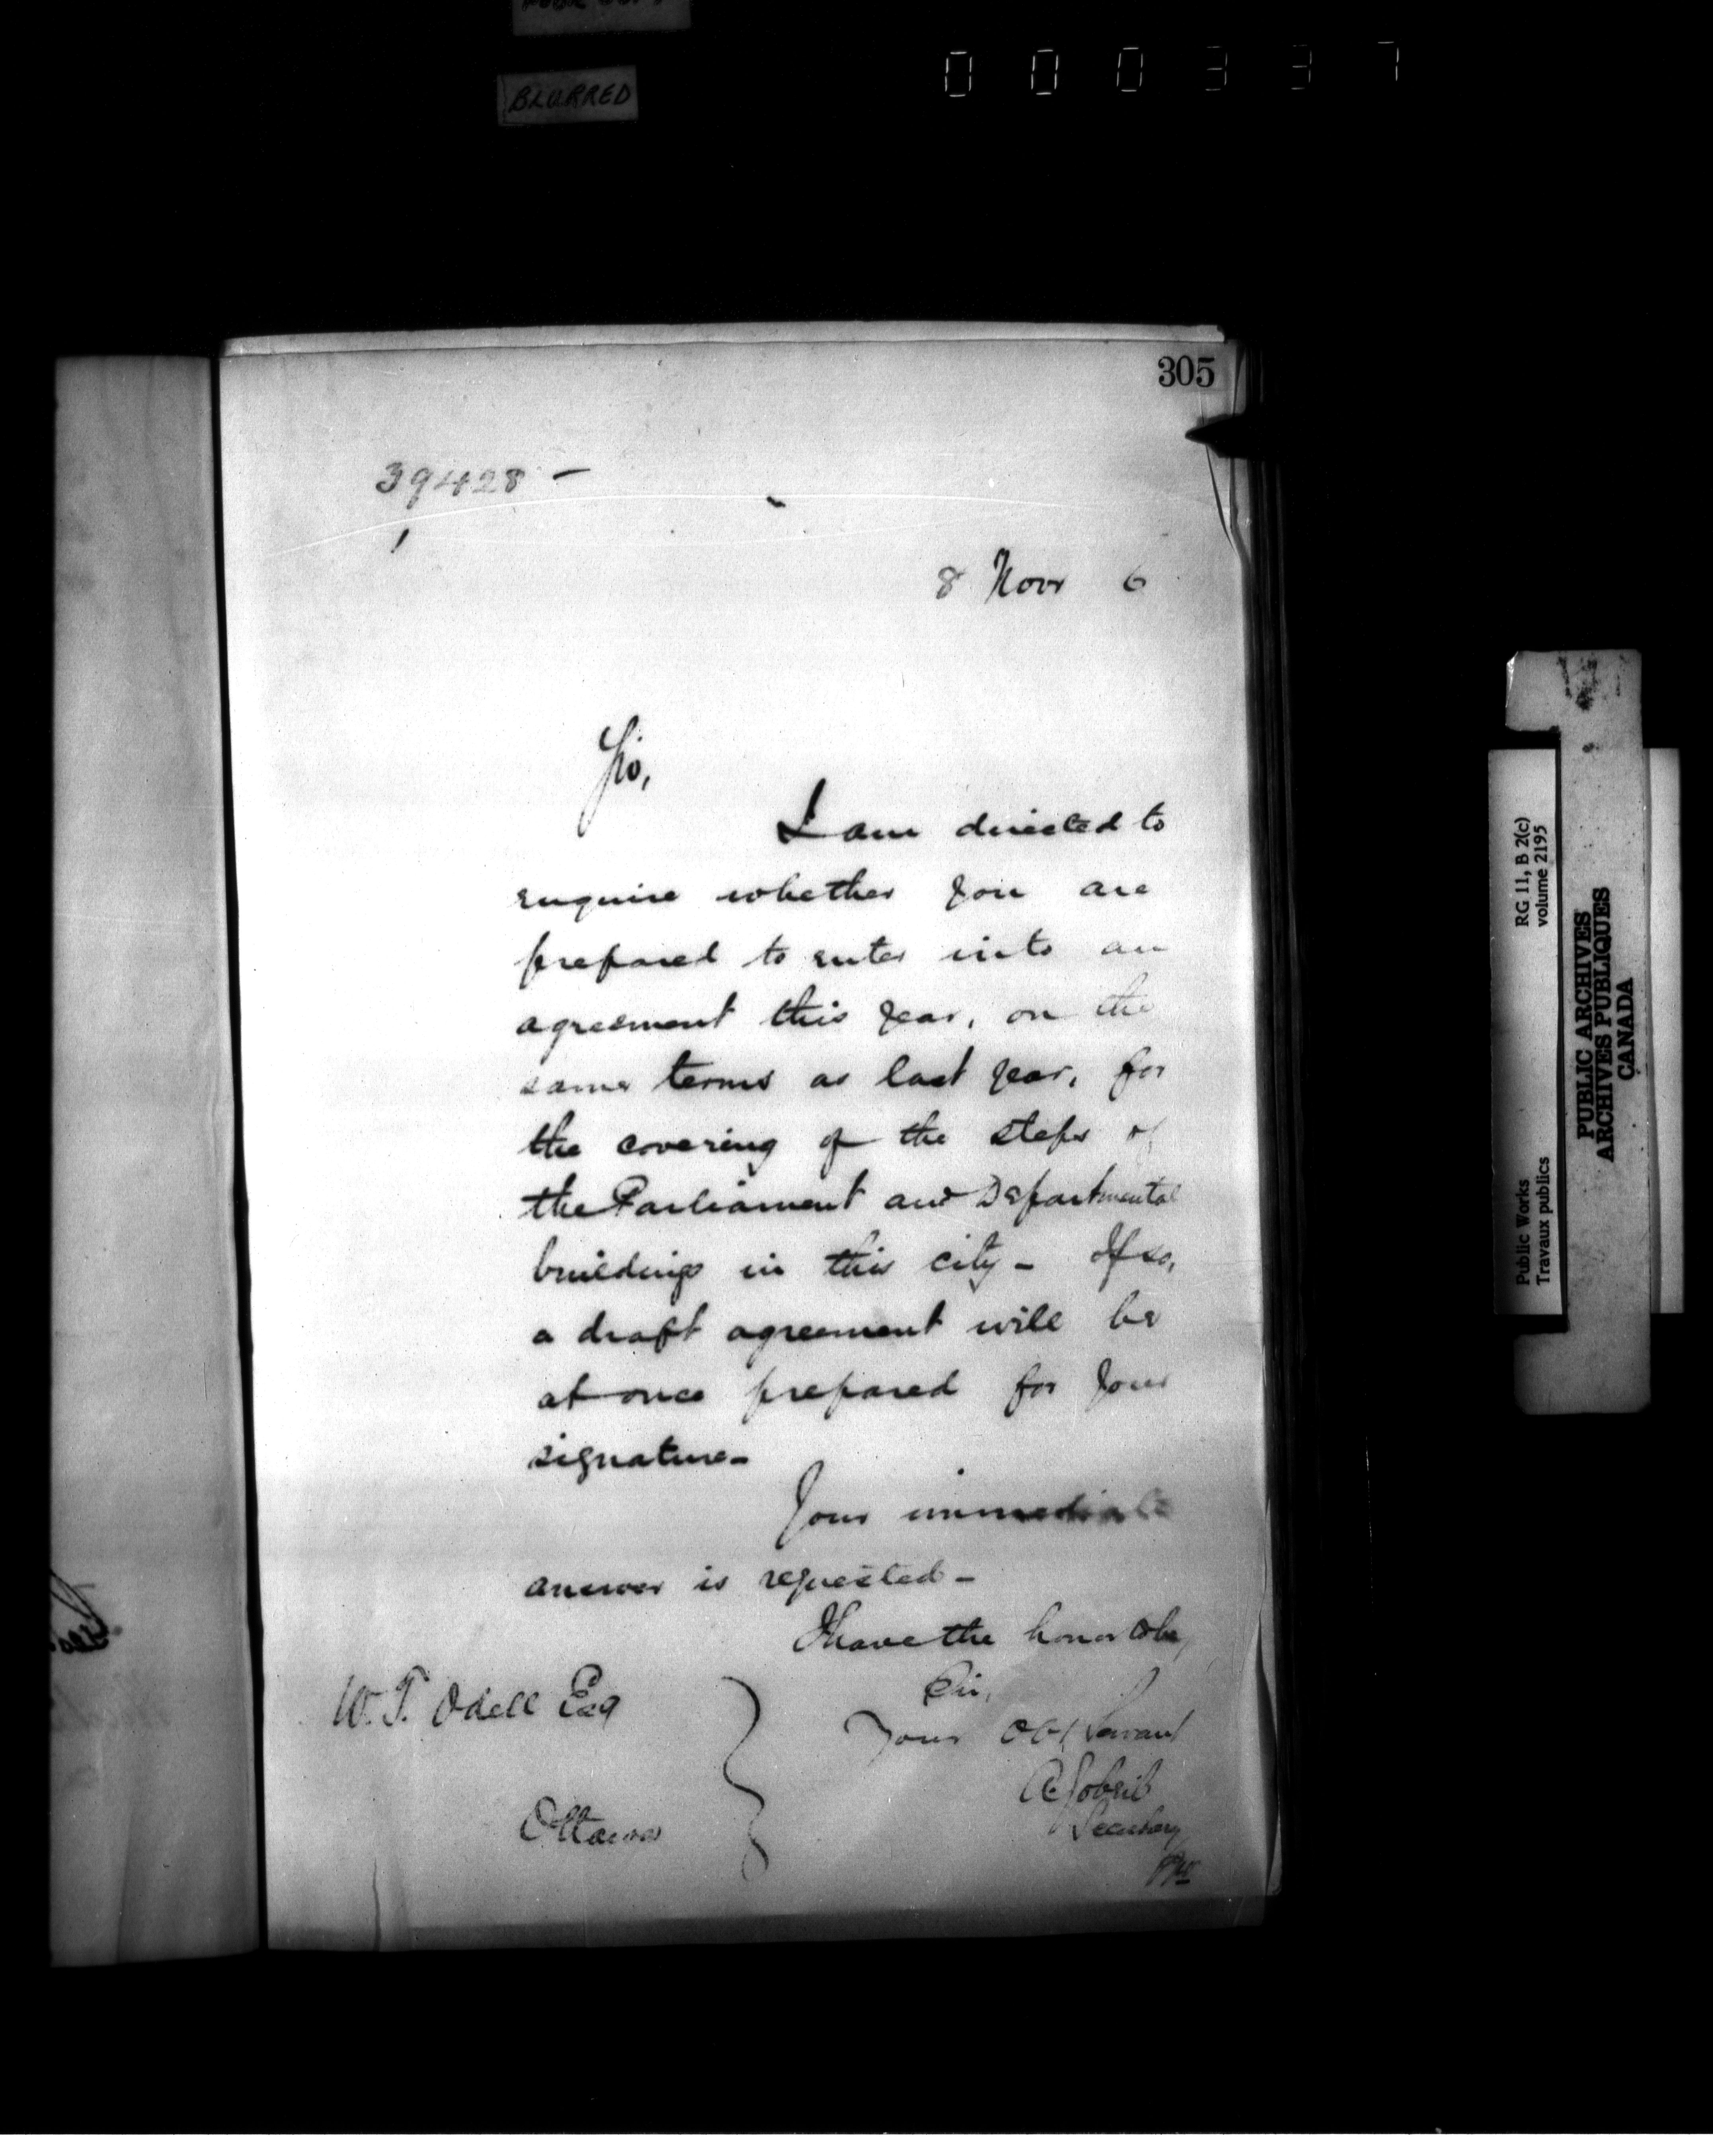 BLURRED
000337
305
39428 -
8 Novr 6
Sir,
I am directed to
enquire whether you are
prepared to enter into an
agreement this year, on the
same terms as last year, for
the covering of the steps of
the Parliament and Departmental
buildings in this city - If so,
a draft agreement will be
at once prepared for your
signature -
Your immediate
answer is requested -
I have the honor to be,
Sir,
Your Obt Servant
Secretary
W. T. Odell Esq
Ottawa
Public Works
Travaux publics
RG 11, B 2(c)
volume 2195
PUBLIC ARCHIVES
ARCHIVES PUBLIQUES
CANADA